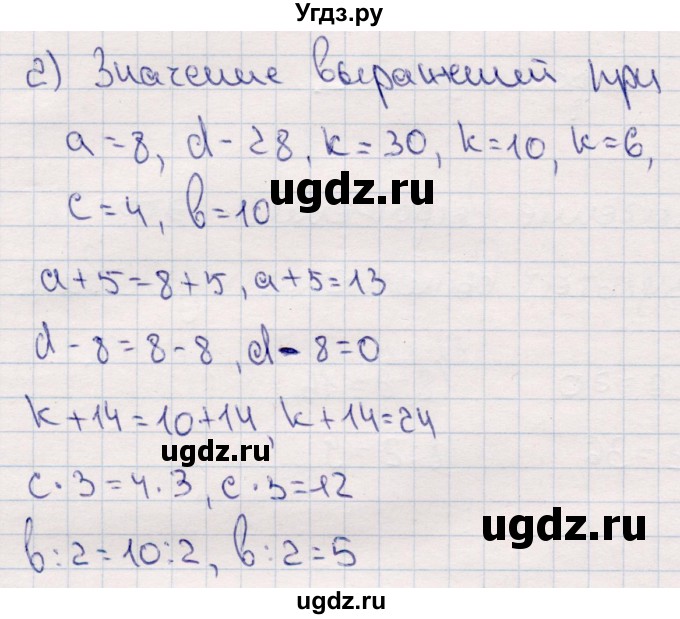 Угдз.ру
2) Значение выражений при
a = 8, d - 28, k = 30, k = 10, k = 6,
ugdz.ru
c = 4, b = 10
a + 5 = 8 + 5, a + 5 = 13
d - 8 = 8 - 8, d - 8 = 0
k + 14 = 10 + 14, k + 14 = 24
ugdz.ru
c · 3 = 4 · 3, c · 3 = 12
ugdz.ru
b : 2 = 10 : 2, b : 2 = 5
ugdz.ru